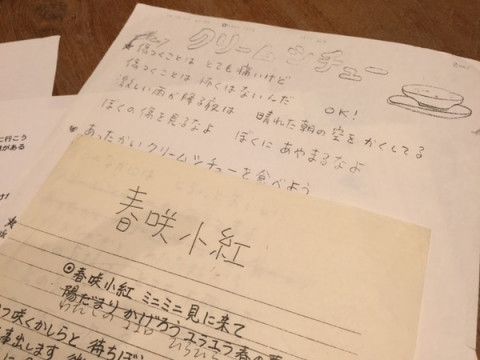 クリームシチュー
★傷つくことは とても痛いけど
傷つくことは 怖くはないんだ OK!
激しい雨が降る夜は 晴れた朝の空をかくしてる
ぼくの傷を見るなよ ぼくにあやまるなよ
あったかいクリームシチューを食べよう
に行こう
がある
春咲小紅
◎春咲小紅 ミニミニ見に来て
陽だまり かげろう ユラユラ 春の
つ咲くかしらと 待ちぼ